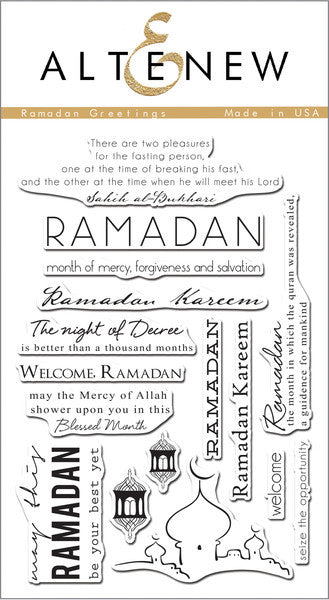 ALTENEW
Ramadan Greetings
Made in USA
There are two pleasures
for the fasting person,
one at the time of breaking his fast,
and the other at the time when he will meet his Lord
Sahih al-Bukhari
RAMADAN
month of mercy, forgiveness and salvation
Ramadan Kareem
The night of Decree
is better than a thousand months
WELCOME, RAMADAN
may the Mercy of Allah
shower upon you in this
Blessed Month
RAMADAN
Ramadan Kareem
Ramadan
the month in which the quran was revealed,
a guidence for mankind
may this
RAMADAN
be your best yet
welcome
seize the opportunity